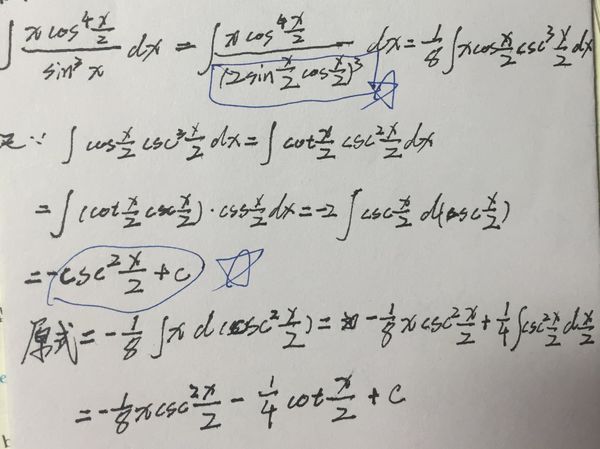 ∫ x cos⁴(x/2) / sin³x dx = ∫ x cos⁴(x/2) / (2 sin(x/2) cos(x/2))³ dx = 1/8 ∫ x cos(x/2) csc³(x/2) dx
又∵ ∫ cos(x/2) csc³(x/2) dx = ∫ cot(x/2) csc²(x/2) dx
= ∫ (cot(x/2) csc(x/2)) · csc(x/2) dx = -2 ∫ csc(x/2) d(csc(x/2))
= -csc²(x/2) + c
原式 = -1/8 ∫ x d(csc²(x/2)) = -1/8 x csc²(x/2) + 1/4 ∫ csc²(x/2) d(x/2)
= -1/8 x csc²(x/2) - 1/4 cot(x/2) + c